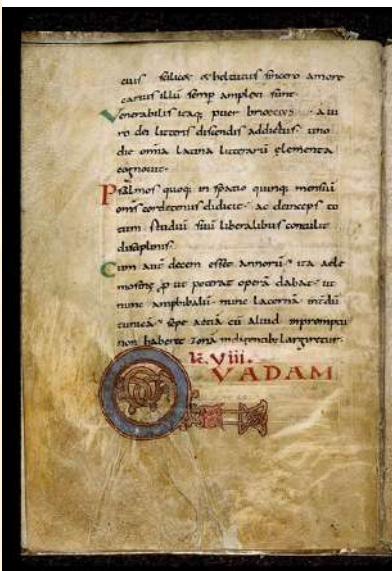 eius scilicet & helducus sincero amore
carius illū semp amplexi sunt.
Venerabilis itaq; puer brioccus a ui
ro dei litteris discendis addictus uno
die omnia latina litterarū elementa
cognouit.
Psalmos quoq; in spatio quinq; mensiū
om̄s cordetenus didicit. ac deinceps to
tum studiū suū liberalibus contulit
disciplinis.
Cum aut decem esset annorū. ita aele
mosinę put poterat operā dabat. ut
nunc amphibalū. nunc lacernā
tunicā. sepe &iā cū aliud inpromptu
non haberet zonā indigentib; largiretur.
k. viii.
QUADAM